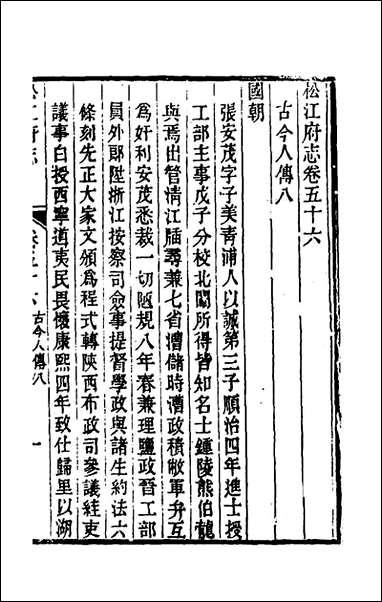 松江府志卷五十六
古今人傳八
國朝
張安茂字子美靑浦人以誠第三子順治四年進士授
工部主事戊子分校北闈所得皆知名士鍾陵熊伯龍
與焉出管淸江牐尋兼七省漕儲時漕政積敝軍弁互
爲奸利安茂悉裁一切陋規八年春兼理鹽政晉工部
員外郎陞浙江按察司僉事提督學政與諸生約法六
條刻先正大家文頒爲程式轉陝西布政司參議絓吏
議事白授西寧道夷民畏懷康熙四年致仕歸里以湖
松江府志
卷五十六 古今人傳八
一